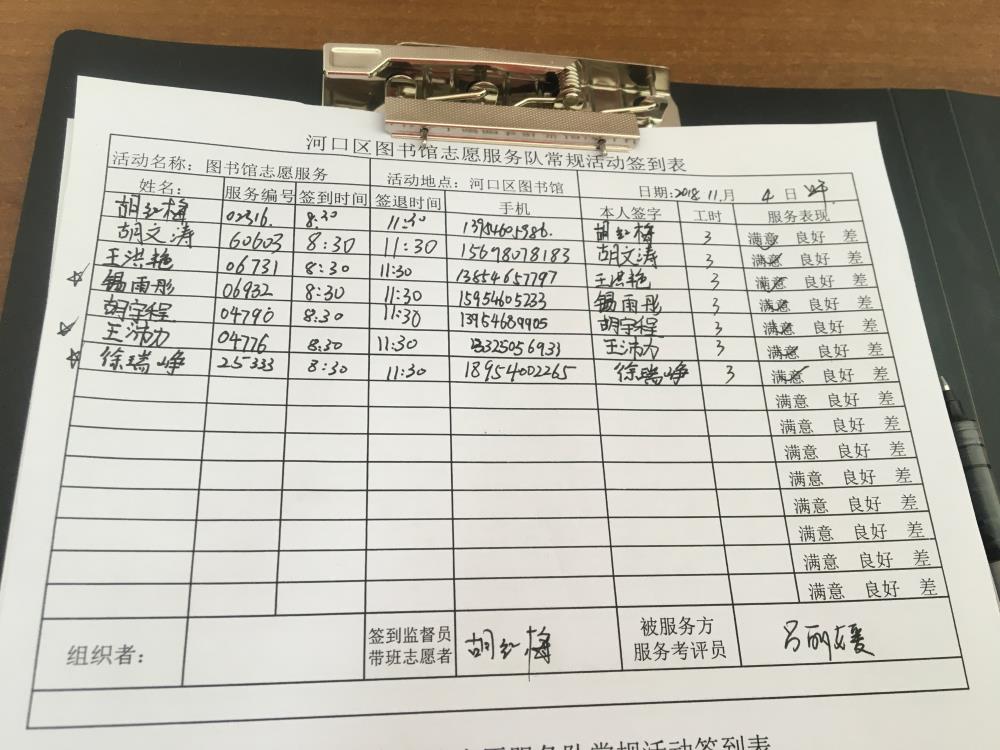 河口区图书馆志愿服务队常规活动签到表
活动名称：图书馆志愿服务 活动地点：河口区图书馆 日期：2018 11月 4 日
姓名： 服务编号 签到时间 签退时间 手机 本人签字 工时 服务表现
胡红梅 02316. 8:30 11:30 13954601986. 胡红梅 3 满意 良好 差
胡文涛 60603 8:30 11:30 15698078183 胡文涛 3 满意 良好 差
王洪艳 06731 8:30 11:30 13854657797 王洪艳 3 满意 良好 差
锡雨彤 06932 8:30 11:30 15954605233 锡雨彤 3 满意 良好 差
胡宇程 04790 8:30 11:30 13954689905 胡宇程 3 满意 良好 差
王沛力 04776 8:30 11:30 13325056931 王沛力 3 满意 良好 差
徐瑞峥 25333 8:30 11:30 18954002265 徐瑞峥 3 满意 良好 差
满意 良好 差
满意 良好 差
满意 良好 差
满意 良好 差
满意 良好 差
满意 良好 差
满意 良好 差
满意 良好 差
组织者： 签到监督员 胡红梅 被服务方 吕丽媛
带班志愿者 服务考评员
志愿服务队常规活动签到表